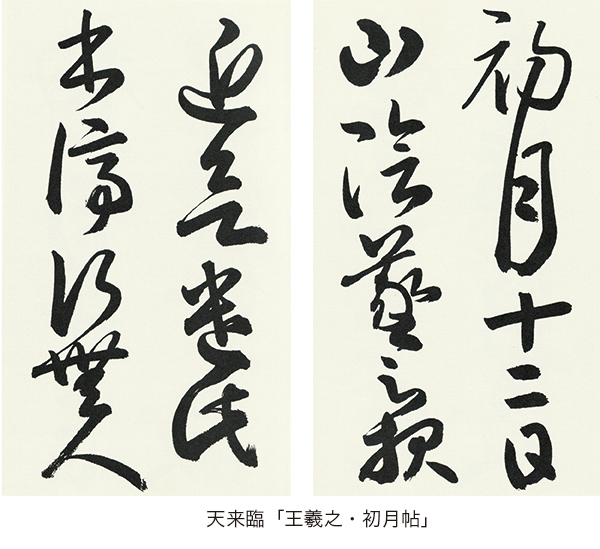 初月十二日
山陰羲之報
近欲遣此
書停行無人
天来臨「王羲之・初月帖」